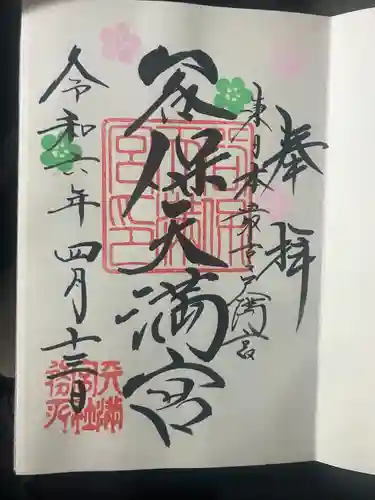 奉拝
東日本最古天満宮
谷保天満宮
令和六年四月十三日
天満宮社務所